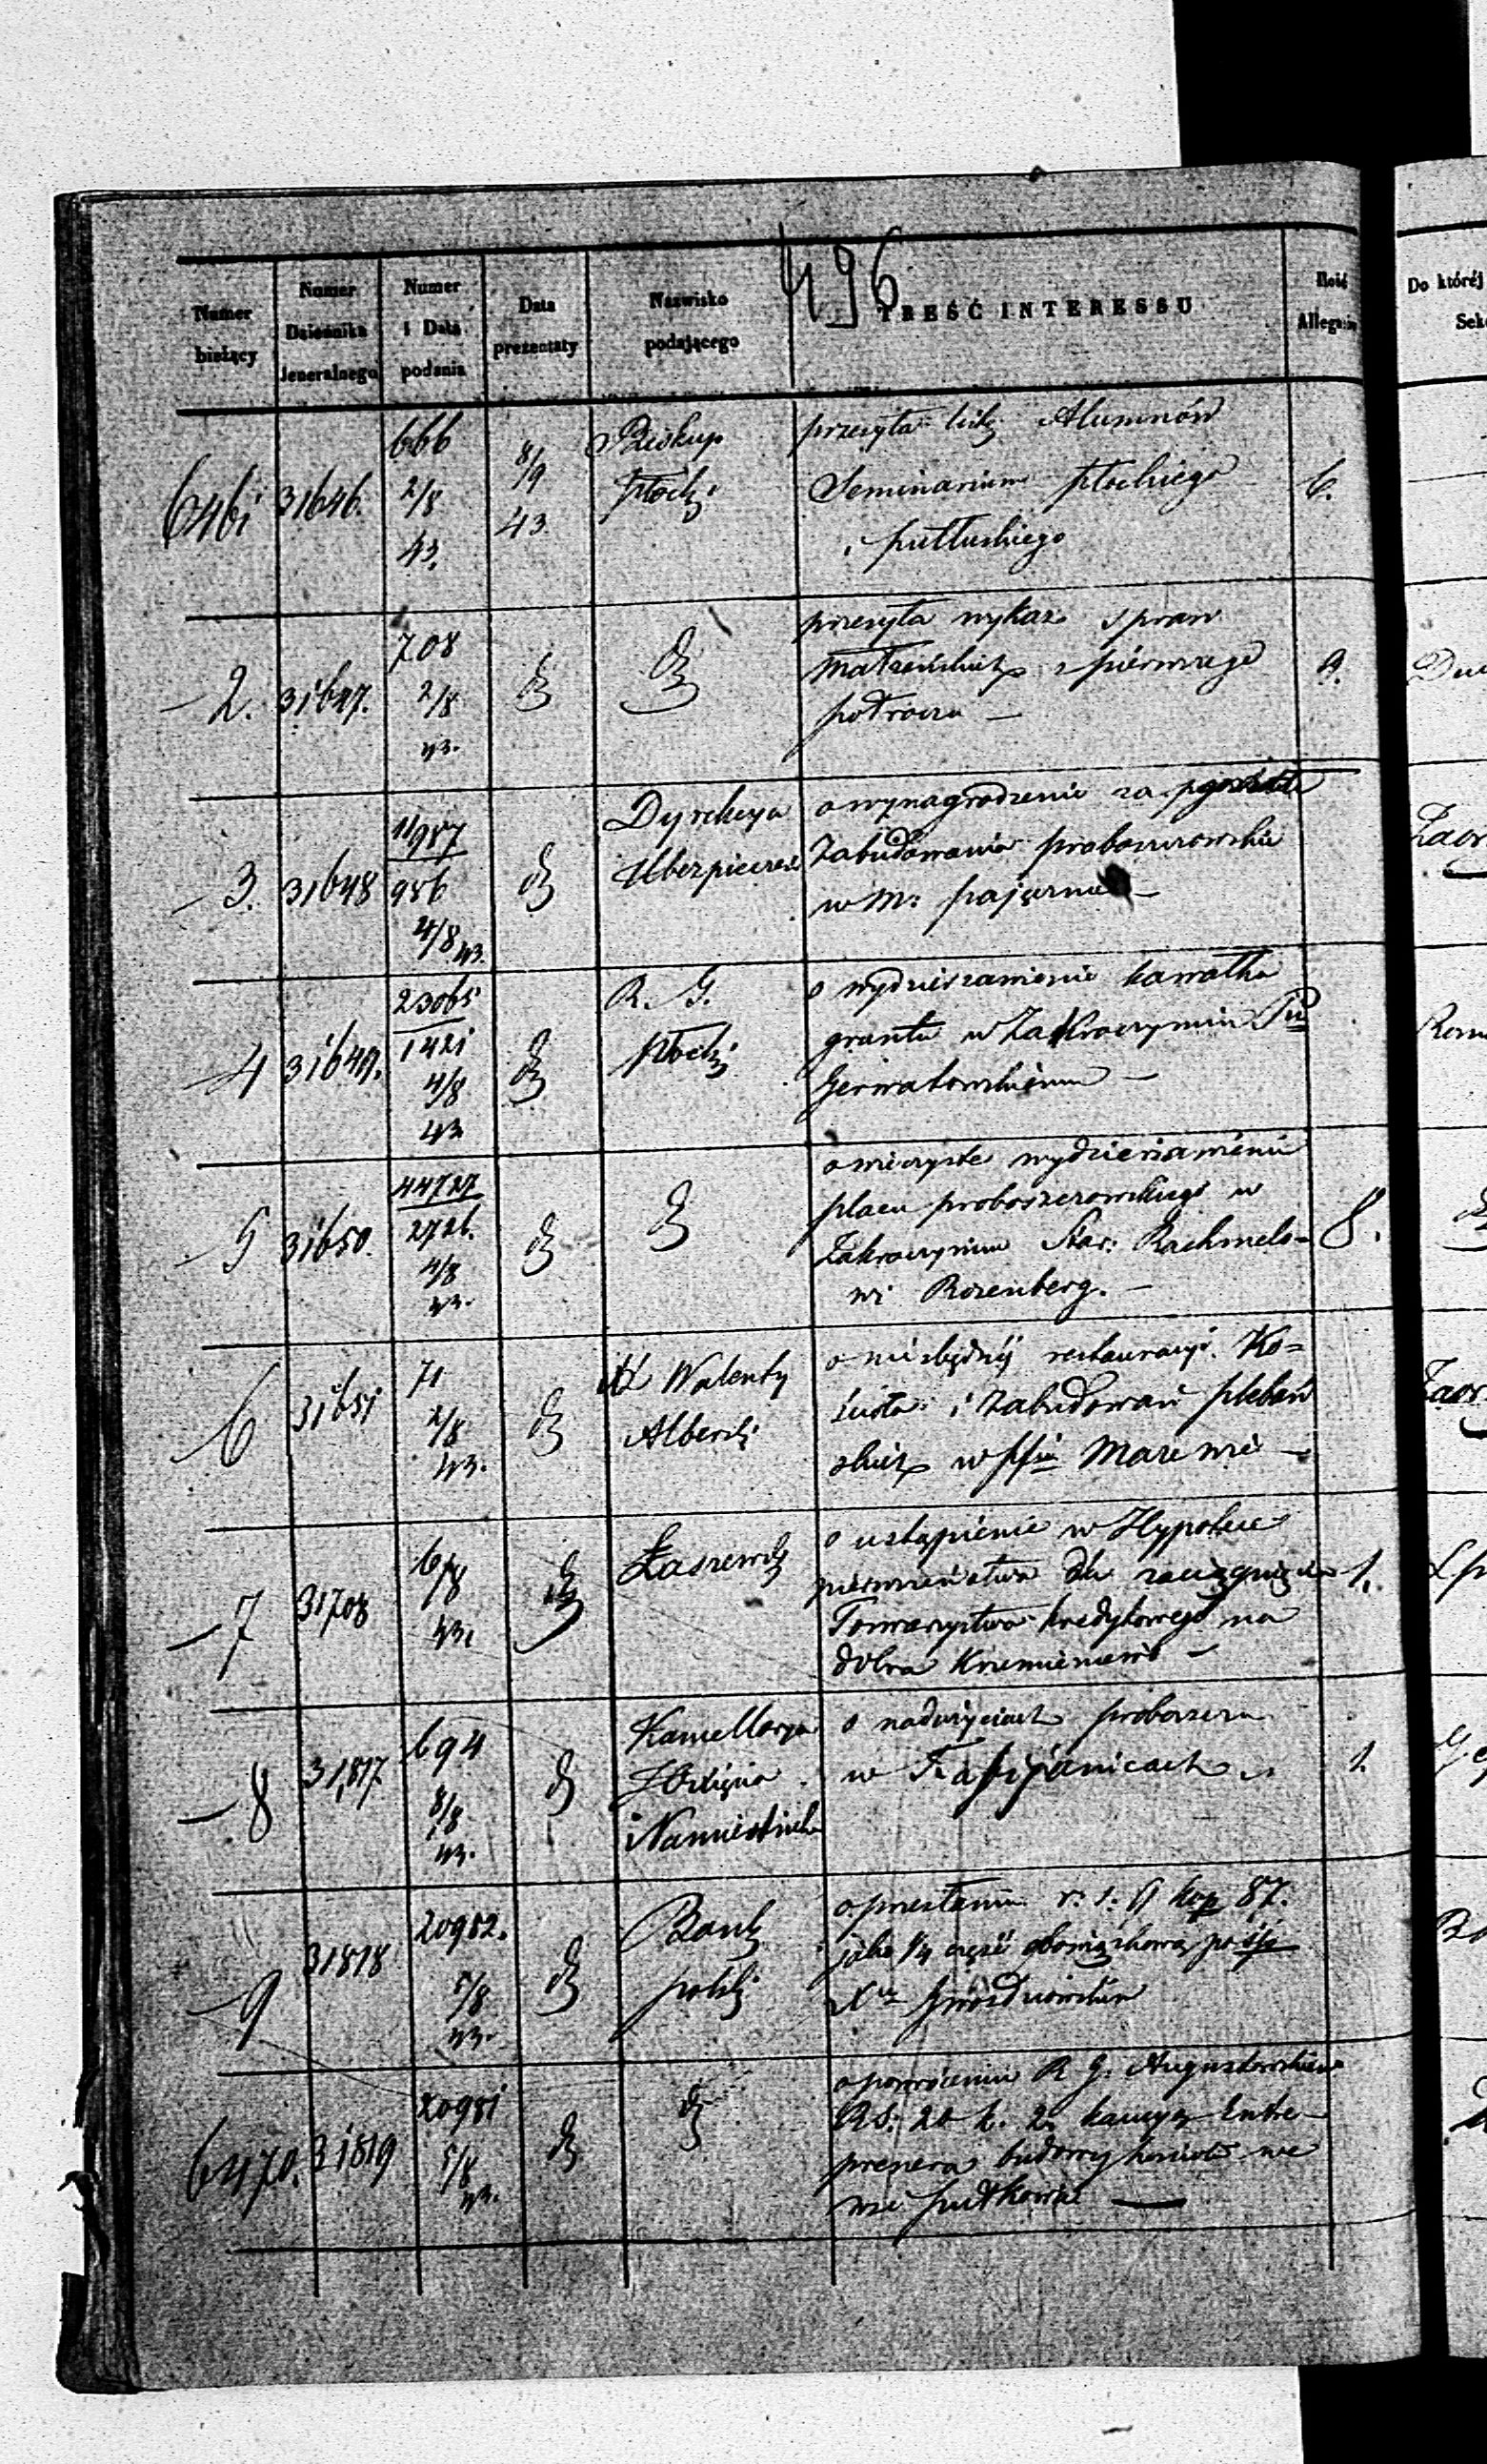 496
Numer bieżący
Numer Dziennika Jeneralnego
Numer i Data podania
Data prezentaty
Nazwisko podającego
TREŚĆ INTERESSU
Ilość
Do któréj
6461
31646.
666
2/8
43.
8/9
43.
Biskup
Płocki
przesyła listę Alumnów
Seminarium płockiego
i pułtuskiego
6.
2.
31647.
708
2/8
43.
przesyła wykaz spraw
małżeńskich z pierwszego
półrocza —
3.
31648
11987
986
4/8 43.
Dyrekcya
o wynagrodzenie za
Zabudowania proboszczowskie
w M:
4
31649.
23065
1421
4/8
43
R. G.
Płocki
o wydzierżawienie kawałka
gruntu w Zakroczymiu
5
31650.
44727
2726.
4/8
43.
o wieczyste wydzierżawienie
placu proboszczowskiego w
Zakroczymiu Star: Rachmelo=
wi Rozenberg. —
8.
6
31651
71
2/8
43.
X Walenty
Alberski
o niezbędnéj restauracyi Ko=
ścioła i Zabudowań plebań
skich w
7
31708
6/8
43.
Łaszewski
o ustąpienie w Hypotece
pierwszeństwa dla
Towarzystwa kredytowego na
dobra Krzemieniewo —
1.
8
31,817
694
8/8
43.
Kancellarya
Xięcia
Namiestnika
o nadużyciach proboszcza
w
1.
9
31818
20982.
5/8
43.
Bank
polski
o przesłaniu r: s: kop 87.
jako 1/4 część
6470.
31819
20981
5/8
43.
o powrócenie R G: Augustowskiemu
RS: 20 k. 2. kaucyą Entre-
prenera budowy kościoła we
wsi —